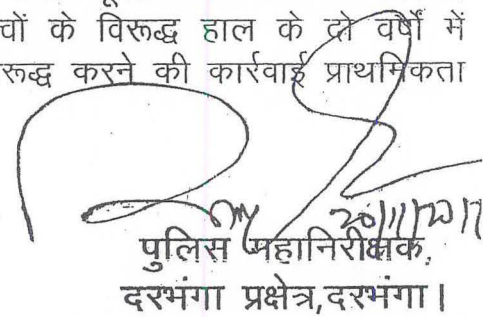 चों के विरूद्ध हाल के दो वर्षों में
रूद्ध करने की कार्रवाई प्राथमिकता
20/11/2017
पुलिस महानिरीक्षक,
दरभंगा प्रक्षेत्र,दरभंगा।